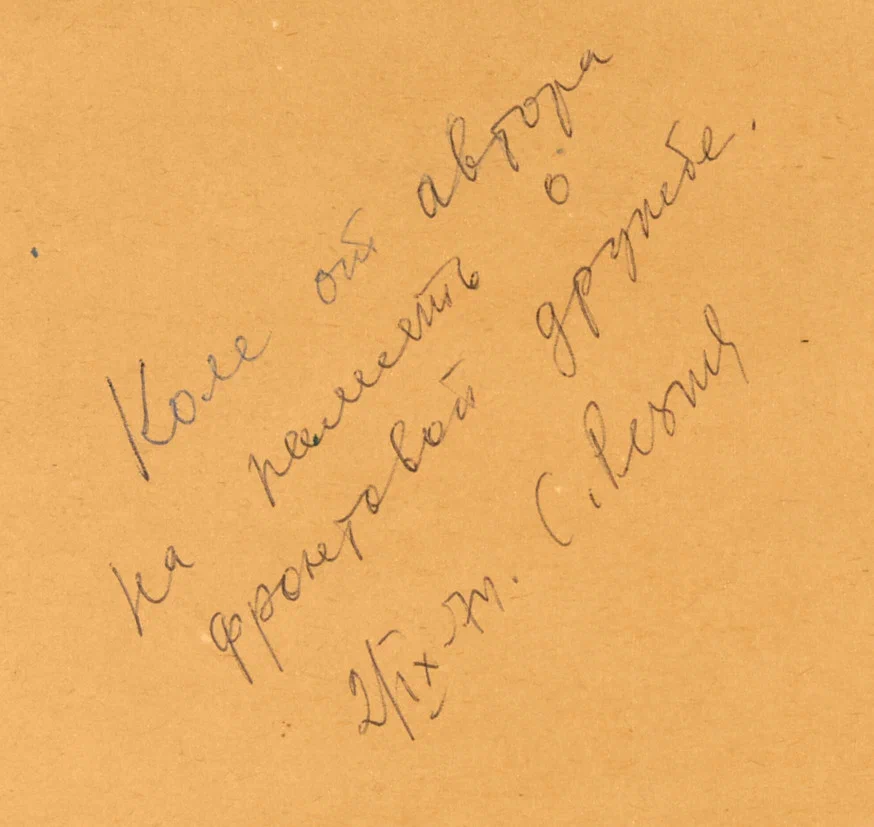 Коле от автора
на память о
фронтовой дружбе.
С. Резник
2/IX